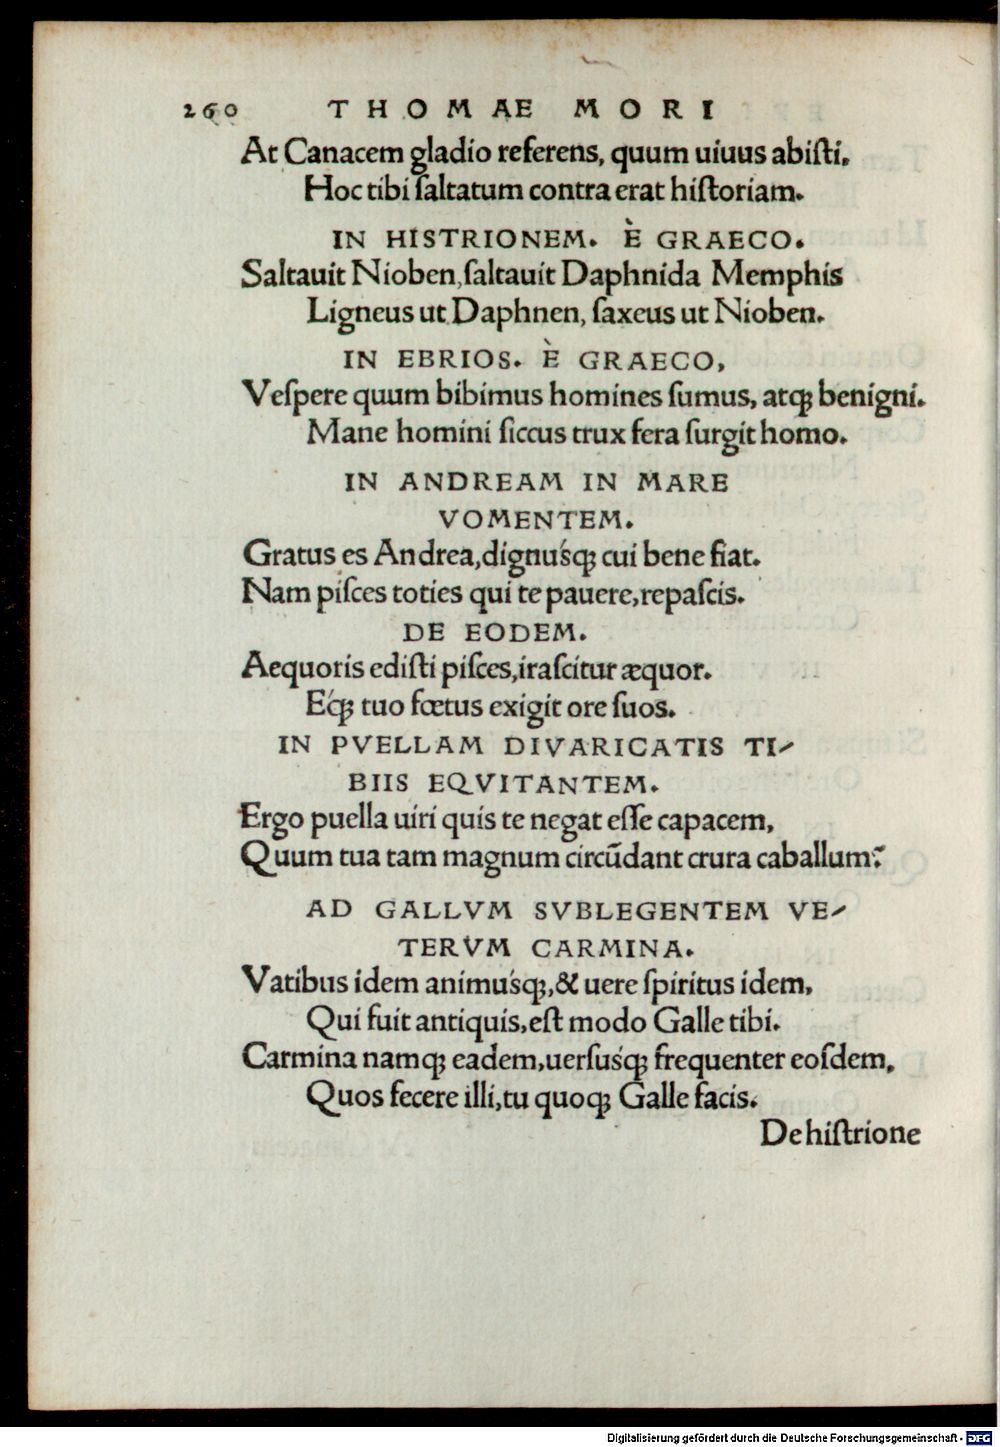 260 THOMAE MORI
At Canacem gladio referens, quum uiuus abiſti,
Hoc tibi ſaltatum contra erat hiſtoriam.
IN HISTRIONEM. È GRAECO.
Saltauit Nioben, ſaltauit Daphnida Memphis
Ligneus ut Daphnen, ſaxeus ut Nioben.
IN EBRIOS. È GRAECO,
Veſpere quum bibimus homines ſumus, atq; benigni.
Mane homini ſiccus trux fera ſurgit homo.
IN ANDREAM IN MARE
VOMENTEM.
Gratus es Andrea, dignuśq; cui bene fiat.
Nam piſces toties qui te pauere, repaſcis.
DE EODEM.
Aequoris ediſti piſces, iraſcitur æquor.
Eq́; tuo fœtus exigit ore ſuos.
IN PVELLAM DIVARICATIS TI-
BIIS EQVITANTEM.
Ergo puella uiri quis te negat eſſe capacem,
Quum tua tam magnum circũdant crura caballum?
AD GALLVM SVBLEGENTEM VE-
TERVM CARMINA.
Vatibus idem animuśq;, & uere ſpiritus idem,
Qui fuit antiquis, eſt modo Galle tibi.
Carmina namq; eadem, uerſuśq; frequenter eoſdem,
Quos fecere illi, tu quoq; Galle facis.
De hiſtrione
Digitalisierung gefördert durch die Deutsche Forschungsgemeinschaft - DFG